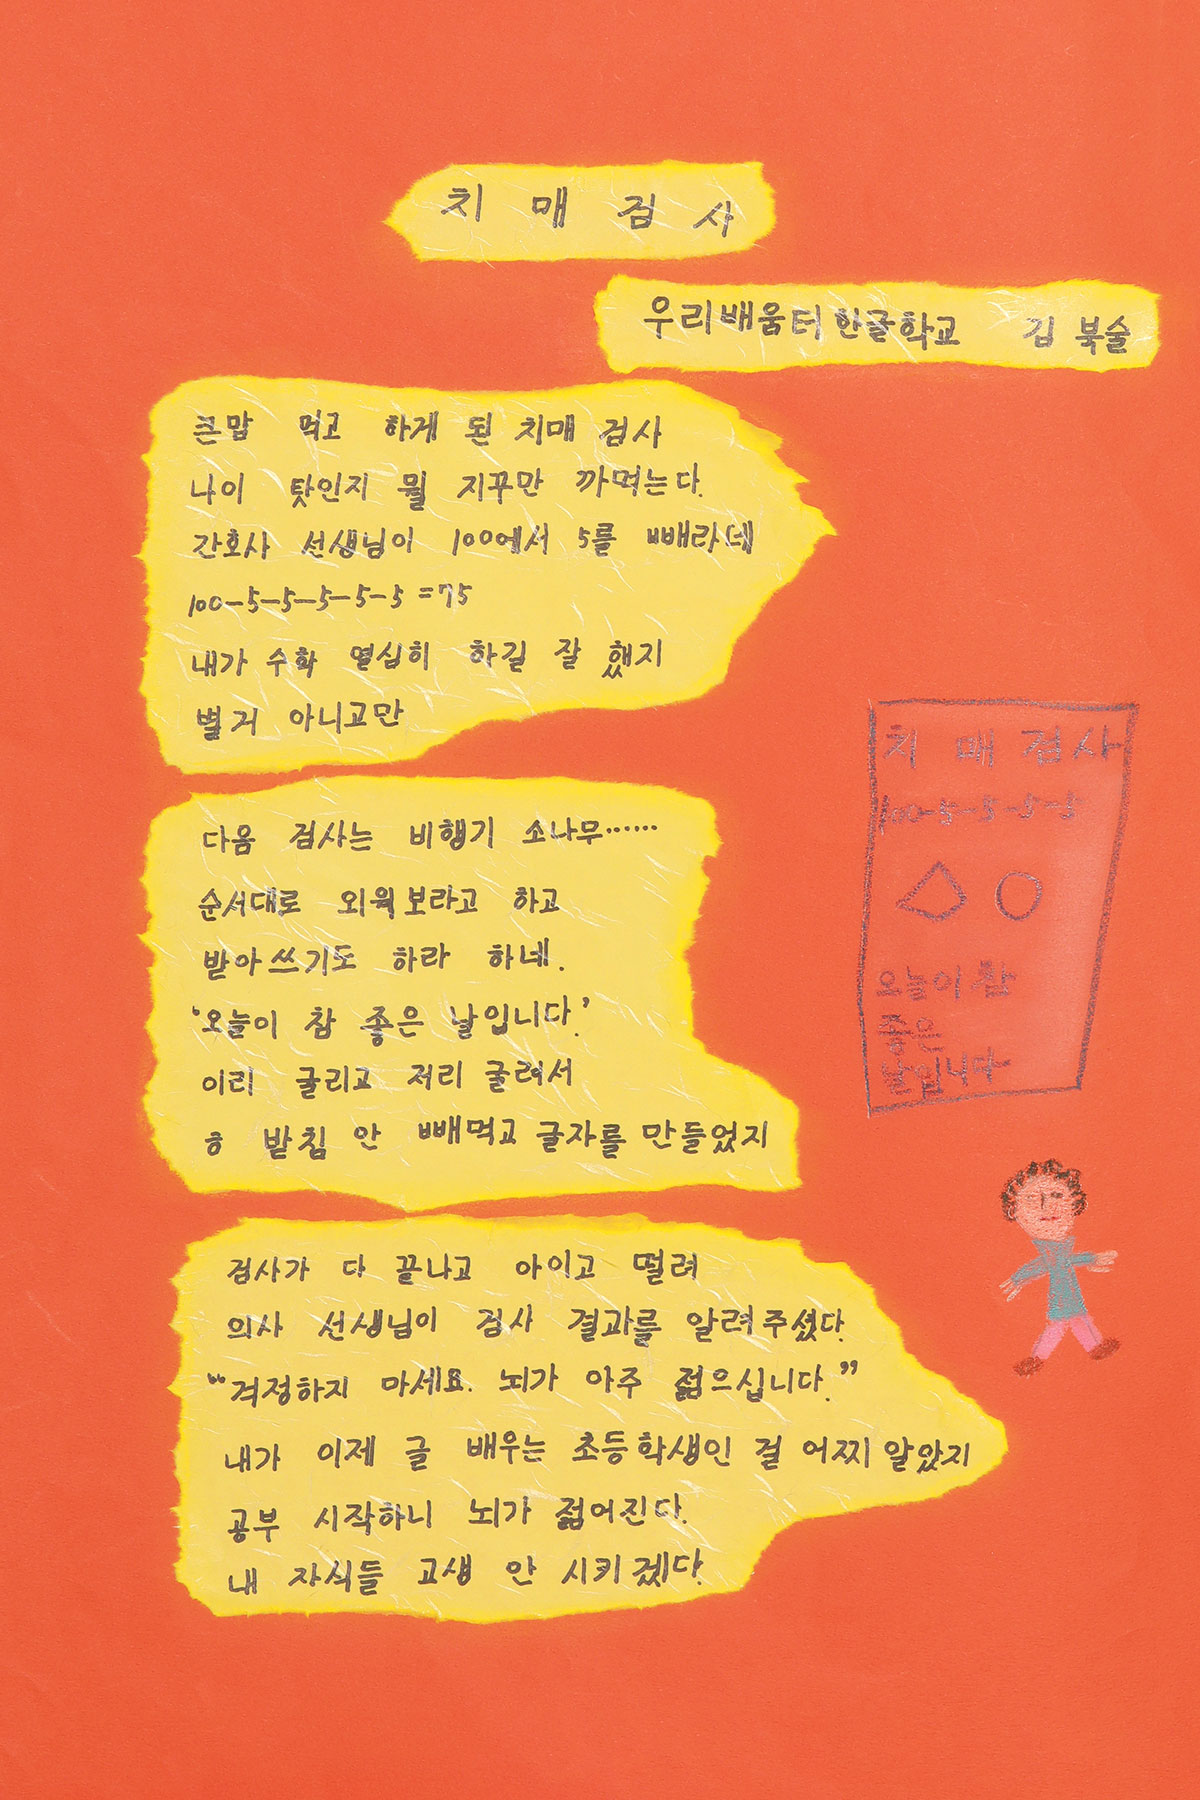 치매검사
우리배움터한글학교 김 북술
큰맘 먹고 하게 된 치매 검사
나이 탓인지 뭘 자꾸만 까먹는다.
간호사 선생님이 100에서 5를 빼라데
100-5-5-5-5-5=75
내가 수학 열심히 하길 잘 했지
별거 아니고만
다음 검사는 비행기 소나무……
순서대로 외워보라고 하고
받아쓰기도 하라 하네.
‘오늘이 참 좋은 날입니다.’
이리 굴리고 저리 굴려서
ㅎ 받침 안 빼먹고 글자를 만들었지
검사가 다 끝나고 아이고 떨려
의사 선생님이 검사 결과를 알려주셨다.
“걱정하지 마세요. 뇌가 아주 젊으십니다.”
내가 이제 글 배우는 초등학생인 걸 어찌 알았지
공부 시작하니 뇌가 젊어진다.
내 자식들 고생 안 시키겠다.
치매검사
100-5-5-5-5
오늘이 참
좋은
날입니다